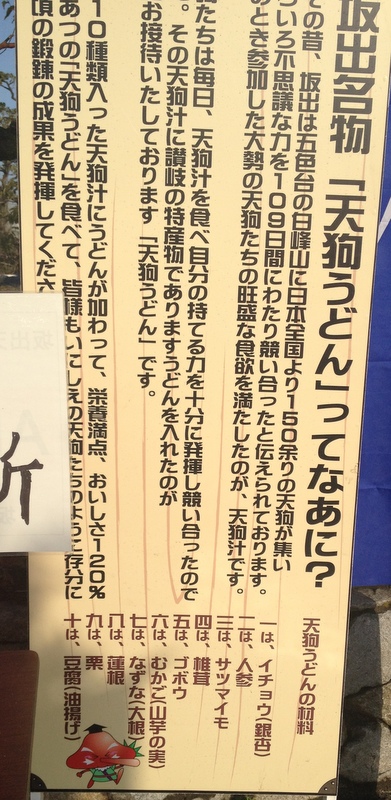 坂出名物 「天狗うどん」ってなあに?
その昔、坂出は五色台の白峰山に日本全国より150余りの天狗が集い
いろいろ不思議な力を109日間にわたり競い合ったと伝えられております。
のとき参加した大勢の天狗たちの旺盛な食欲を満たしたのが、天狗汁です。
たちは毎日、天狗汁を食べ自分の持てる力を十分に発揮し競い合ったので
。その天狗汁に讃岐の特産物でありますうどんを入れたのが
お接待いたしております「天狗うどん」です。
10種類入った天狗汁にうどんが加わって、栄養満点、おいしさ120%
あつの「天狗うどん」を食べて、皆様もいにしえの天狗たちのように存分に
頃の鍛錬の成果を発揮してくださ
天狗うどんの材料
一は、イチョウ(銀杏)
二は、人参
三は、サツマイモ
四は、椎茸
五は、ゴボウ
六は、むかご(山芋の実)
七は、なずな(大根)
八は、蓮根
九は、栗
十は、豆腐(油揚げ)
所